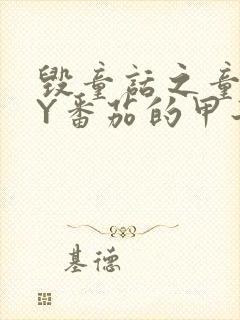 毁童话之童
Y番茄的甲
基德